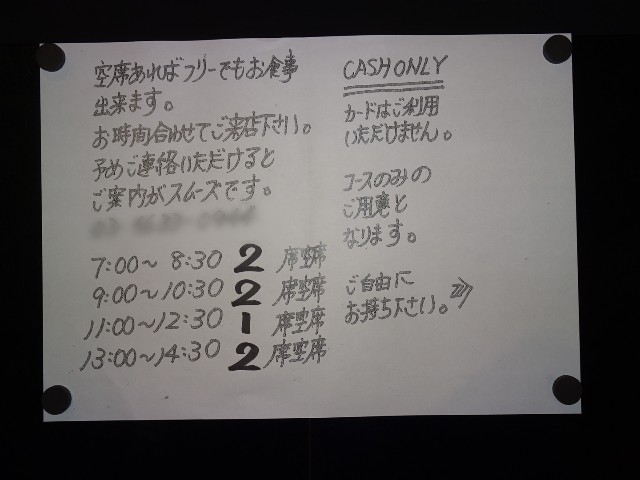 空席あればフリーでもお食事
出来ます。
お時間合わせてご来店下さい。
予めご連絡いただけると
ご案内がスムーズです。
7:00〜 8:30 2 席空席
9:00〜10:30 2 席空席
11:00〜12:30 1 席空席
13:00〜14:30 2 席空席
CASH ONLY
カードはご利用
いただけません。
コースのみの
ご用意と
なります。
ご自由に
お持ち下さい。